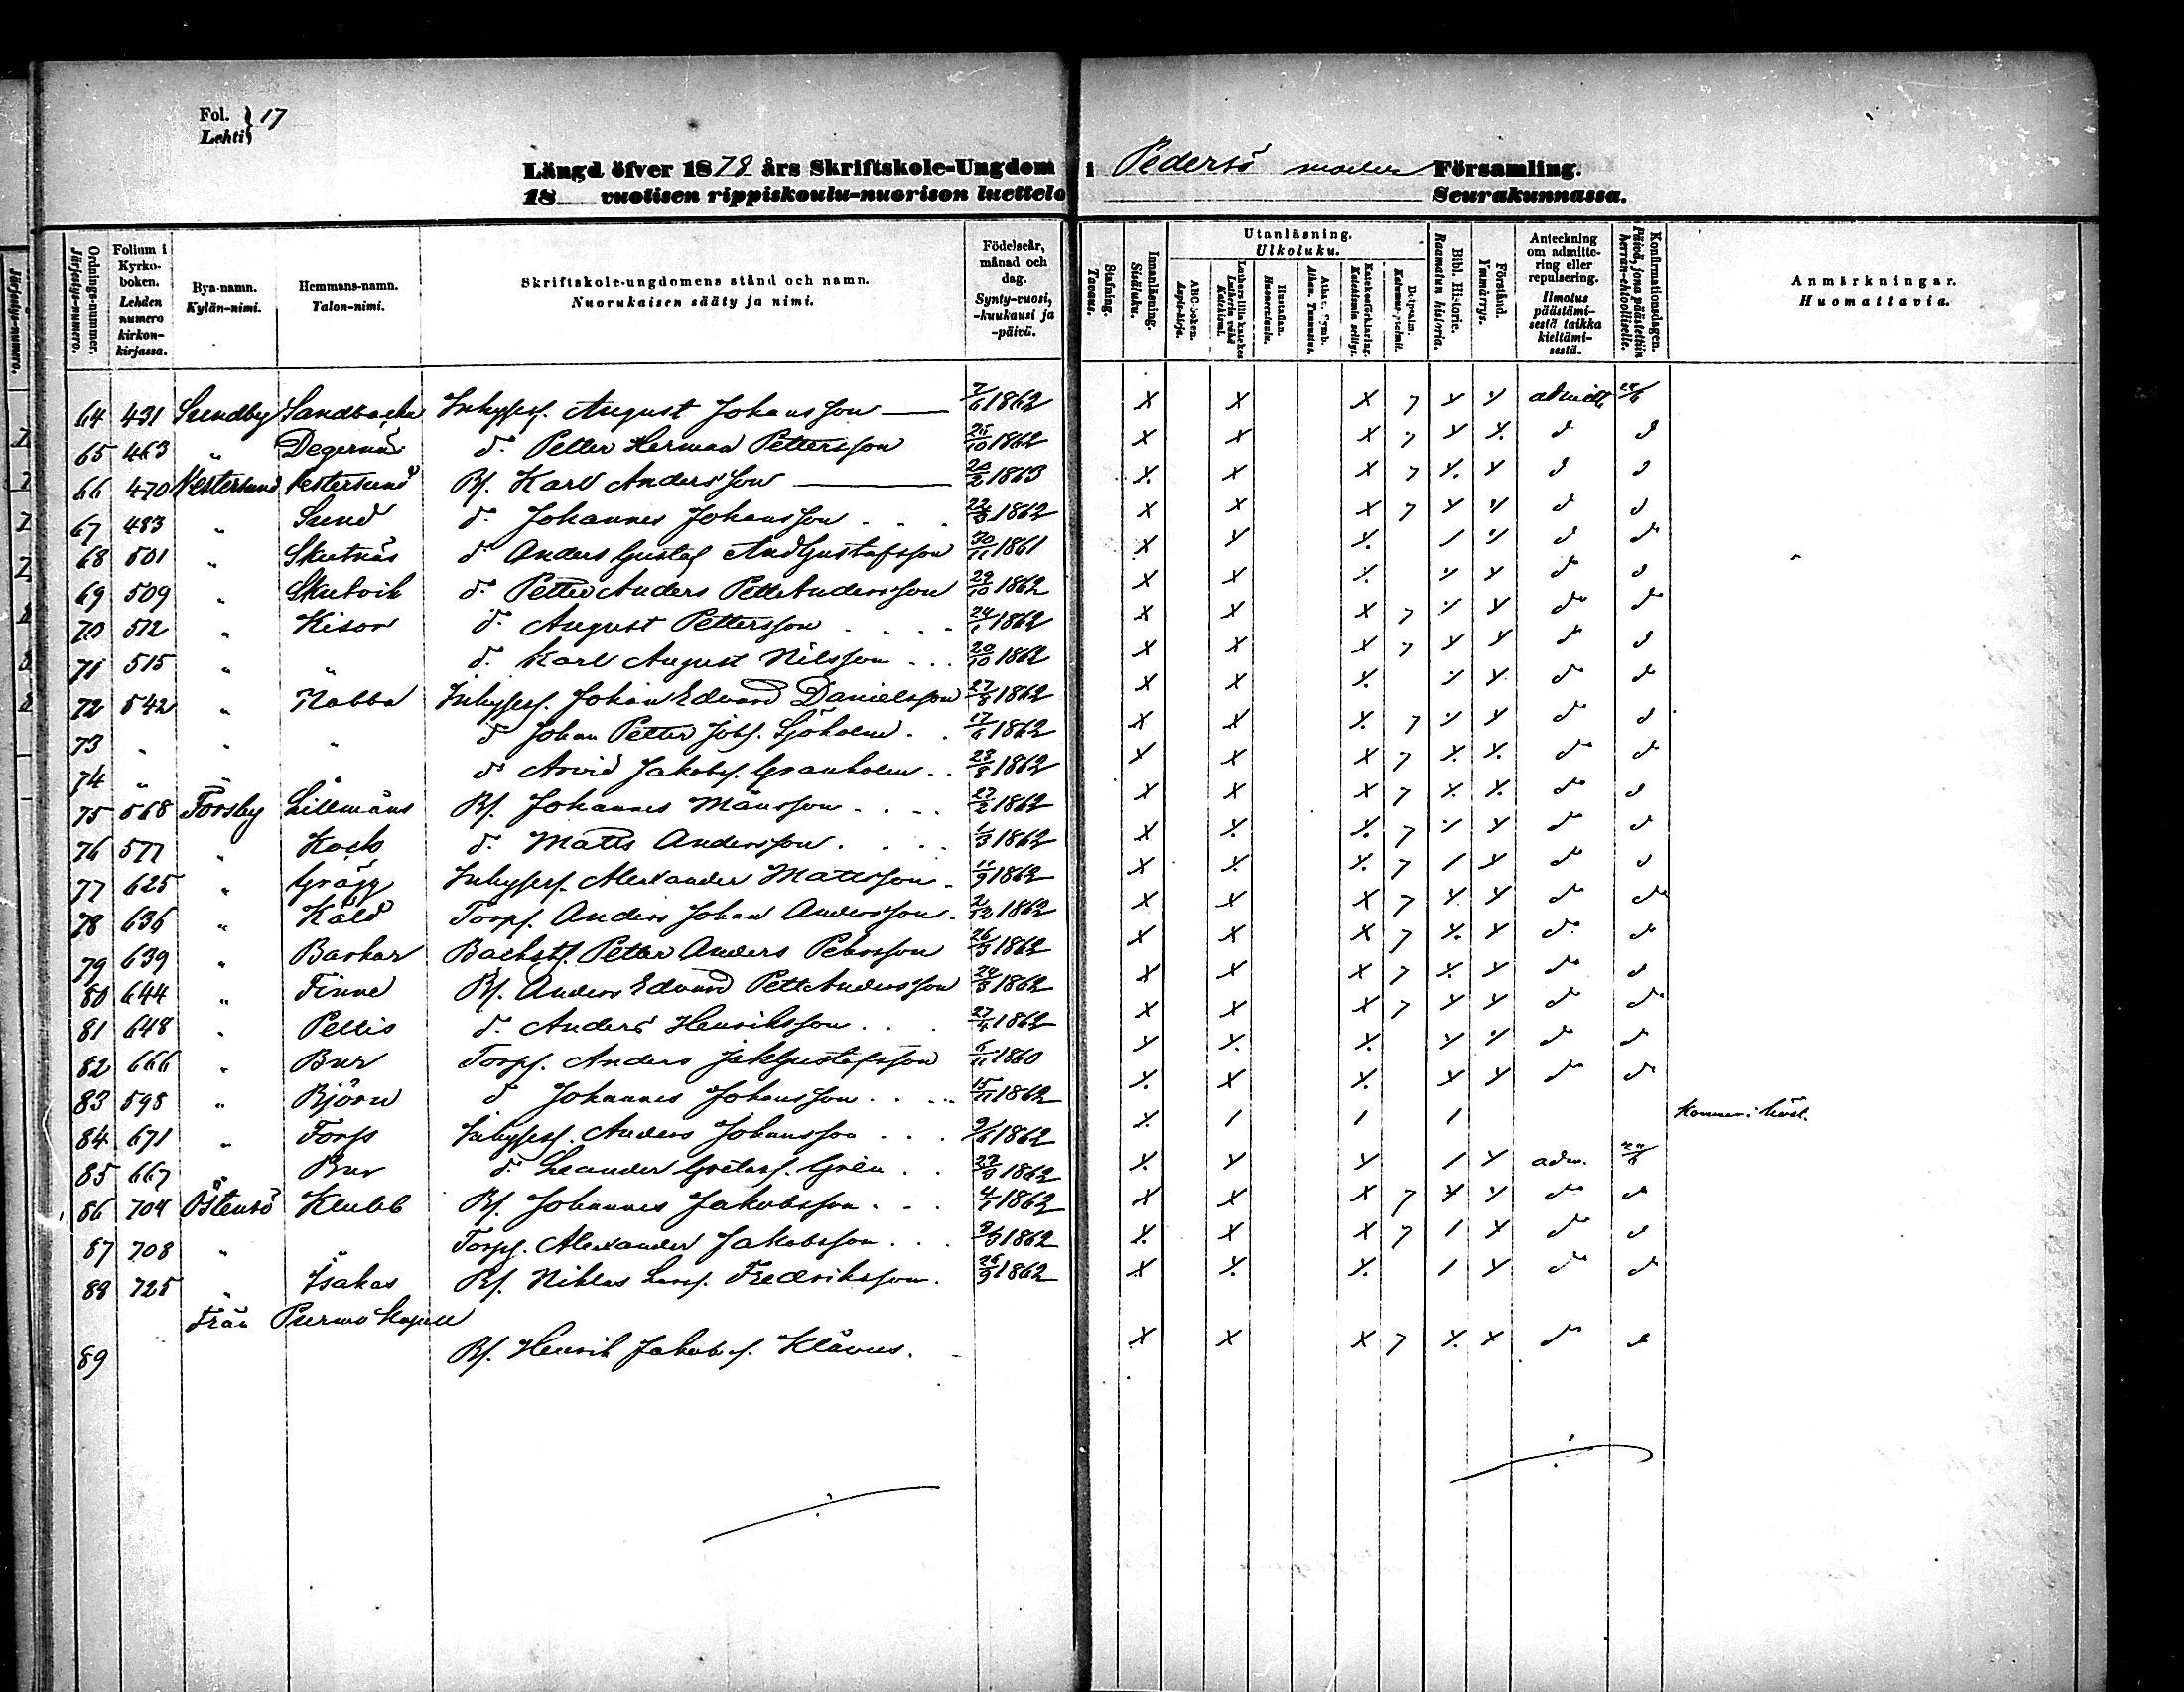 Fol. Lehti } 17
Längd öfver 1878 års Skriftskole-Ungdom i Pedersö moder Församling.
18 vuotisen rippiskoulu-nuorison luettelo Seurakunnassa.
Ordnings-nummer. Järjestys-numero.
Folium i Kyrko-boken. Lehden numero kirkon-kirjassa.
Bya-namn. Kylän-nimi.
Hemmans-namn. Talon-nimi.
Skriftskole-ungdomens stånd och namn. Nuorukaisen sääty ja nimi.
Födelseår, månad och dag. Synty-vuosi, -kuukausi ja -päivä.
Stafning. Tavaus.
Innanläsning. Sisäluku.
Utanläsning. Ulkoluku.
ABC-boken. Aapis-kirja.
Lutherslilla katekes Lutherin vähä Katekismi.
Hustaflan. Huoneentaulu.
Athan. Symb. Athan. Tunnustus.
Katekesförklaring. Katekismin selitys.
Davidspsalm.
Bibl. Historie. Raamatun historia.
Förstånd. Ymmärrys.
Anteckning om admitte-ring eller repulsering. Ilmotus päästämi-sestä taikka kieltämi-sestä.
Konfirmationsdagen. Päivä, jona päästettiin herran-ehtoolliselle.
Anmärkningar. Huomattavia.
64 431 Sundby Sandbacka Inhysess. August Johansson 7/6 1862 x x x 7 y y admitt 24/6
65 463 " Degernäs d:o Petter Herman Pettersson 25/10 1862 x x x 7 y y d:o d:o
66 470 Vestersund Vestersund Bs. Karl Andersson 20/2 1863 x x x 7 y y d:o d:o
67 483 " Sund d:o Johannes Johansson 22/8 1862 x x x 7 y y d:o d:o
68 501 " Skutnäs d:o Anders Gustaf AndGustafsson 30/11 1861 x y x / y d:o d:o
69 509 " Skutvik d:o Petter Anders PettAndersson 29/10 1862 x x x y y d:o d:o
70 512 " Kisor d:o August Pettersson 24/1 1862 x x x 7 y y d:o d:o
71 515 " " d:o Karl August Nilsson 20/10 1862 x x x 7 y y d:o d:o
72 542 " Nabba Inhysess. Johan Edvard Danielsson 27/8 1862 x x x y y d:o d:o
73 " " " d:o Johan Petter Johs. Sjöholm 17/6 1862 x x x 7 y y d:o d:o
74 " " " d:o Arvid Jakobs. Granholm 23/8 1862 x x x 7 y y d:o d:o
75 568 Forsby Lillmåns Bs. Johannes Månsson 23/2 1862 x x x 7 y y d:o d:o
76 577 " Kock d:o Matts Andersson 1/3 1862 x x x 7 y y d:o d:o
77 625 " Grägg Inhysess. Alexander Mattsson 11/9 1862 x x x 7 / y d:o d:o
78 636 " Käld Torps. Anders Johan Andersson 2/12 1862 x x x 7 y y d:o d:o
79 639 " Barkar Backsts. Petter Anders Pehrsson 26/3 1862 x x x 7 y y d:o d:o
80 644 " Finne Bs. Anders Edvard PettAndersson 24/3 1862 x x x 7 y y d:o d:o
81 648 " Pellis d:o Anders Henriksson 27/4 1862 x x x 7 y y d:o d:o
82 666 " Bur Torps. Anders JakGustafsson 6/11 1860 y y x y y d:o d:o
83 598 " Björn d:o Johannes Johansson 15/11 1862 x x x y y d:o d:o
84 671 " Forss Inhysess. Anders Johansson 9/6 1862 x / / / Kommer i höst.
85 667 " Bur d:o Leander Grén 27/9 1862 x y y / y adm. 24/6
86 704 Östensö Klubb Bs. Johannes Jakobsson 4/1 1862 x x x 7 y y d:o d:o
87 708 " " Torps. Alexander Jakobsson 3/3 1862 x x x 7 / y d:o d:o
88 725 " Isakas Bs. Niklas Lars. Fredriksson 26/9 1862 x x x / y d:o d:o
Från Purmo Kapell
89 Bs. Henrik Jakobs. Klavus. x x x 7 y x d:o d:o